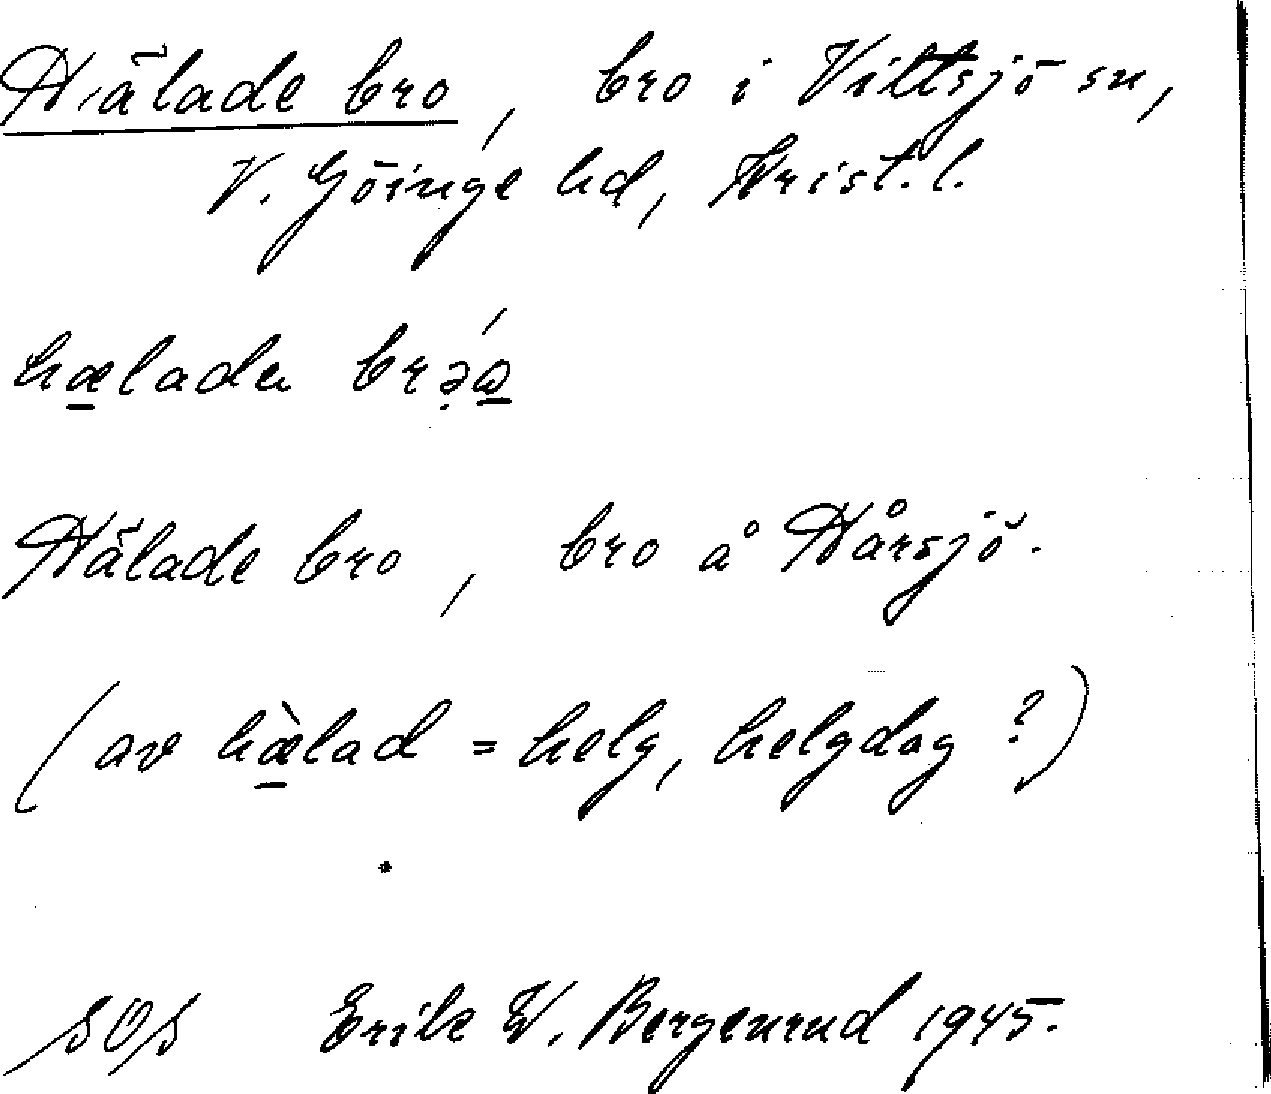 Hälade bro, bro i Vittsjö sn,
V. Göinge hd, Krist. l.
hæladɐ brəώ
Hälade bro, bro å Hårsjö.
(av hæ̀lad = helg, helgdag?)
SOS Erik W. Bergenrud 1945.